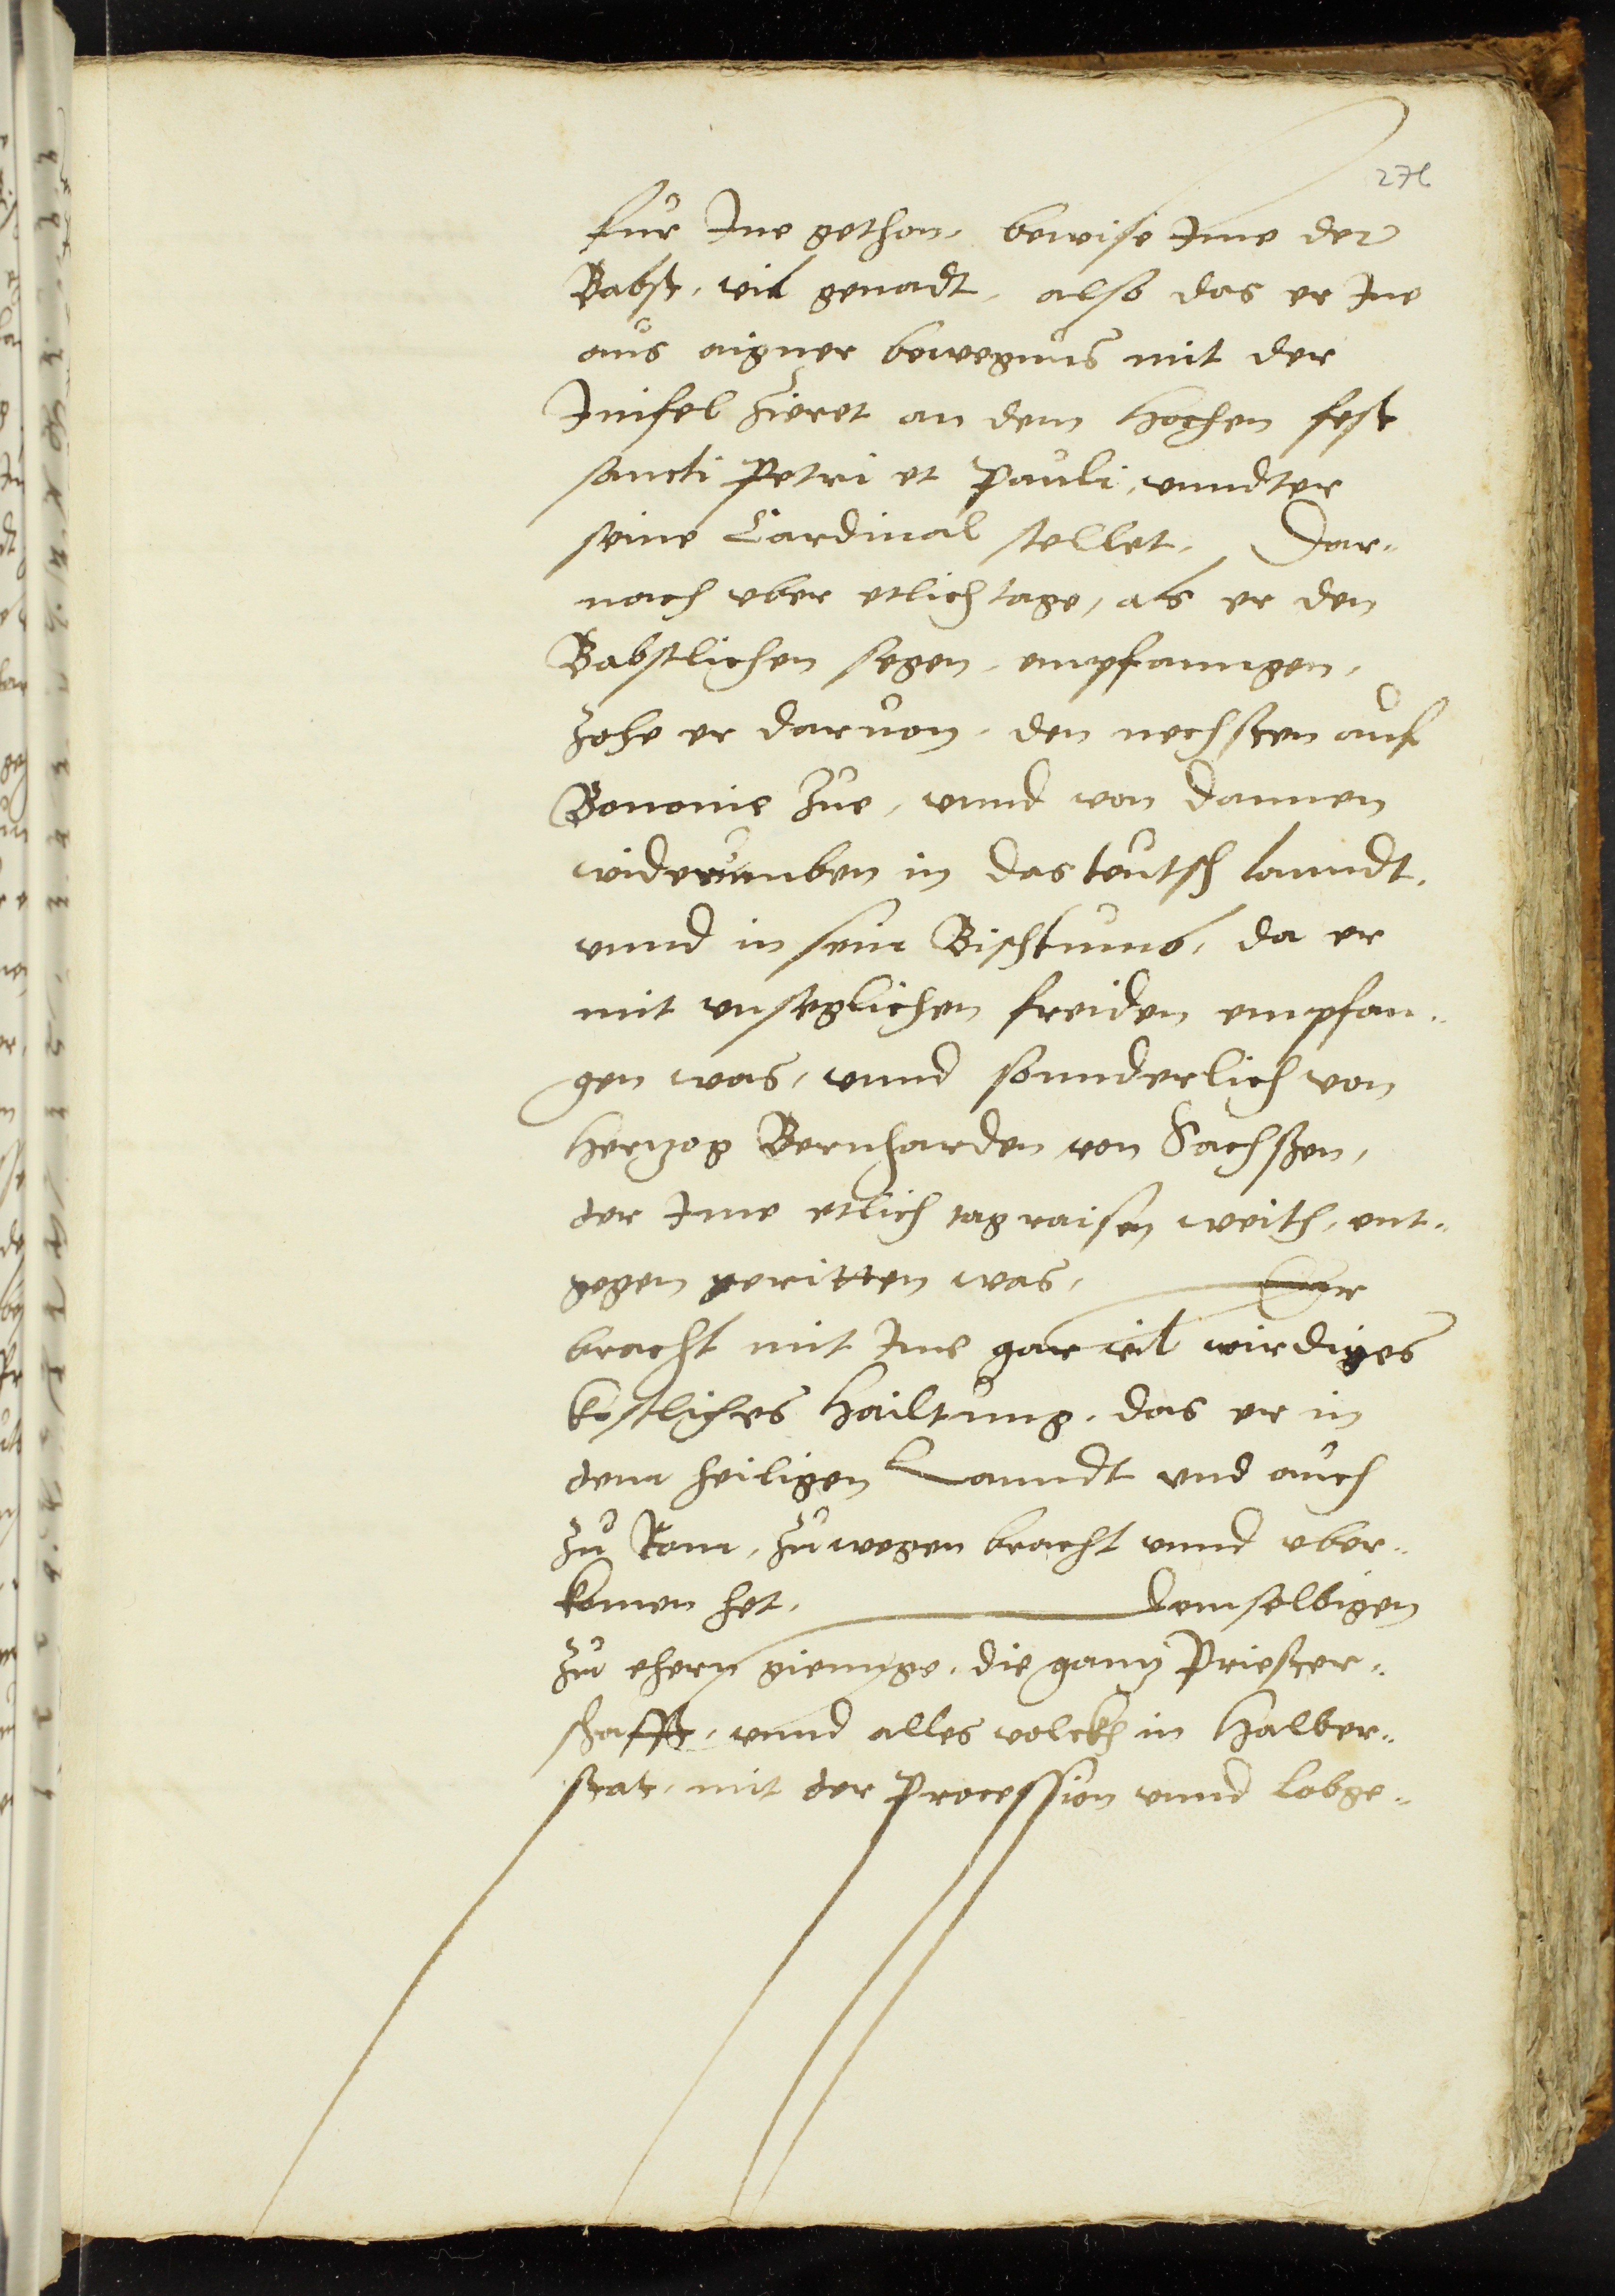 276
fur Ine gethon, bewise Ime der
Babst, vil genadt, also das er Ine
aus aigner bewegnus mit der
Innfel zieret an dem hochen fest
sancti Petri et Pauli, unndter
seine Cardinal stellet, Dar¬
nach uber etlich tage, als er den
Babstlichen segen, empfanngen,
Zohe er daruon, den nechsten auf
Bononie Zue, unnd von dannen
widerumben in das teutsch lanndt,
unnd in sein Bischtumb, da er
mit unseglichen freiden empfan¬
gen was, unnd sonnderlich von
Hertzog Bernharden von Sachssen,
der Ime etlich tagraisen weith, ent¬
gegen geritten was, Er
bracht mit Ime gar vil wirdiges
kostliches Hailtumb, das er in
dem heiligen Lanndt und auch
zu Rom, zuwegen bracht unnd uber¬
komen het, Demselbigen
zu ehern gienge, die gantz Priester¬
schafft, unnd alles volckh in Halber¬
stat, mit der Procession unnd lobge¬